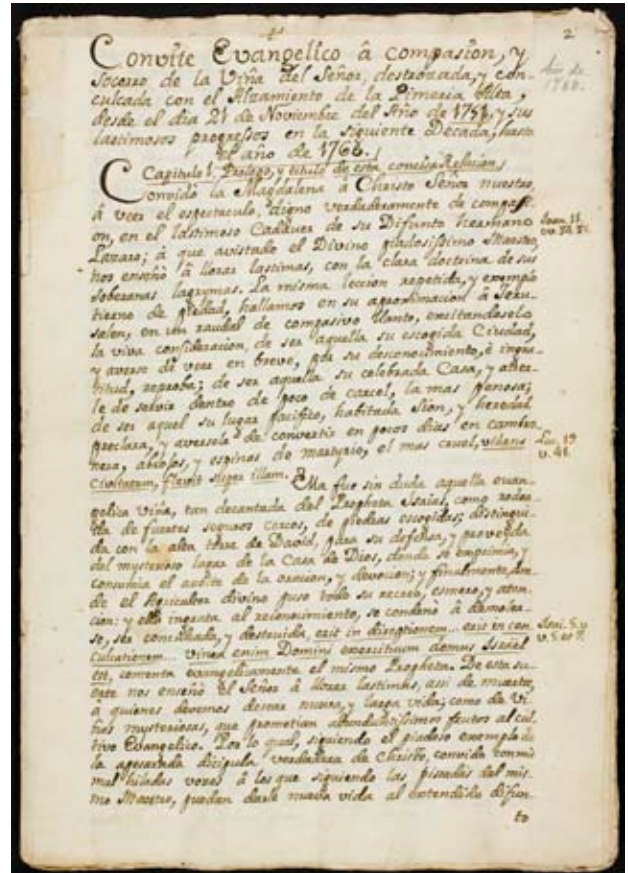 2
Convite Evangelico â compasion, y
Socorro de la Viña del Señor, destrozada, y con-
culcada con el Alzamiento de la Pimeria Alta,
desde el dia 21 de Noviembre del Año de 1751, y sus
lastimosos progressos en la siguiente Decada, hasta
el año de 1760.
Año de
1760.
Capitulo 1. Prologo, y titulo de esta concisa Relacion.
Convidó la Magdalena â Christo Señor nuestro,
â veer el espectaculo, digno verdaderamente de compassi-
on, en el lastimoso Cadáver de su Difunto hermano
Lazaro; â que avistado el Divino piadosissimo Maestro,
nos enseñó â llorar lastimas, con la clara doctrina de sus
soberanas lagrymas. La misma leccion repetida, y exemplo
tierno de piedad, hallamos en su aproximacion â Jeru-
salen, en un raudal de compasivo llanto, excitandoselo
la viva consideracion, de ser aquella su escogida Ciudad,
y averse de veer en breve, por su desconocimiento, è ingra-
titud, reproba; de ser aquella su celebrada Casa, y aver-
le de servir dentro de poco de carcel, la mas penosa;
de ser aquel su lugar pacifico, habitada Sion, y heredad
preclara, y aversela de convertir en pocos dias en
abrojos, y espinas de martyrio, el mas cruel, videns
Civitatem, flevit super illam. Ella fue sin duda aquella evan-
gelica Viña, tan decantada del Propheta Isaias, como rodea-
da de fuertes seguros cercos, de piedras escogidas; distingui-
da con la alta torre de David, para su defensa, y proveida
del mysterioso lagar de la Casa de Dios, donde se exprimia, y
consumia el azeite de la oracion, y devocion; y finalmente, don-
de el Agricultor divino puso todo su recato, esmero, y aten-
cion: y ella ingrata al reconocimiento, se condenó â
se, ser conculcada, y destruida, erit in direptionem... erit in con-
culcationem... vinea enim Domini exercituum domus Israël
est, comenta evangelicamente el mismo Propheta. De esta su-
erte nos enseñó el Señor â llorar lastimas, assi de muertos,
â quienes devemos desear nueva, y larga vida; como de Vi-
ñas mysteriosas, que prometian abundantissimos frutos al cul-
tivo Evangelico. Por lo qual, siguiendo el piadoso exemplo de
la apesarada discipula verdadera de Christo, convido con mis
mal hiladas vozes â los que siguiendo las pisadas del mis-
mo Maestro, puedan darle nueva vida al extendido difun-
to
Joan. 11.
Luc. 19
v. 41.
Isai. 5.
v. 5. et 7.